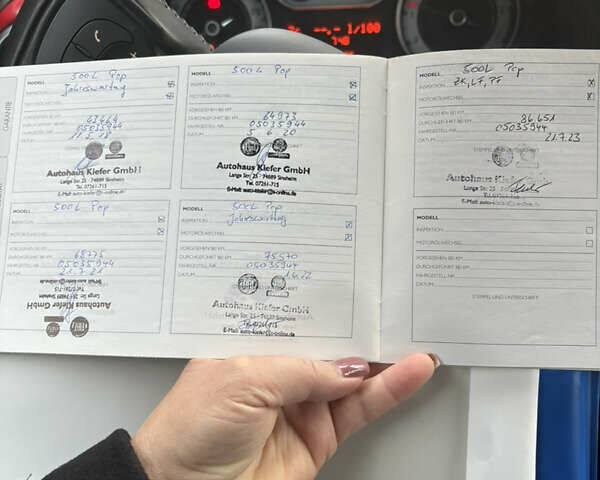 --,- 1/100
GARANTIE
MODELL 500L Pop
INSPEKTION Jahreswartung
MOTORÖLWECHSEL
VORGESEHEN BEI KM
DURCHGEFÜHRT BEI KM
FAHRGESTELL-NR. 05035944
DATUM
Autohaus Kiefer GmbH
Lange Str. 25 - 74889 Sinsheim
Tel. 07261-715
MODELL 500L Pop
INSPEKTION
MOTORÖLWECHSEL
VORGESEHEN BEI KM
DURCHGEFÜHRT BEI KM 64973
FAHRGESTELL-NR. 05035944
DATUM 5.6.20
Autohaus Kiefer GmbH
Lange Str. 25 - 74889 Sinsheim
Tel. 07261-715
MODELL 500L Pop
INSPEKTION ZK, LF, PF
MOTORÖLWECHSEL
VORGESEHEN BEI KM
DURCHGEFÜHRT BEI KM 86.651
FAHRGESTELL-NR. 05035944
DATUM 21.7.23
STEMPEL UND UNTERSCHRIFT
Autohaus
MODELL 500L Pop
INSPEKTION
MOTORÖLWECHSEL
VORGESEHEN BEI KM
DURCHGEFÜHRT BEI KM 68775
FAHRGESTELL-NR. 05035944
DATUM
Autohaus Kiefer GmbH
Lange Str. 25 - 74889 Sinsheim
Tel. 07261-715
MODELL 500L Pop
INSPEKTION Jahreswartung
MOTORÖLWECHSEL
VORGESEHEN BEI KM
DURCHGEFÜHRT BEI KM 75570
FAHRGESTELL-NR. 05035944
DATUM
Autohaus Kiefer GmbH
Lange Str. 25 - 74889 Sinsheim
MODELL
INSPEKTION
MOTORÖLWECHSEL
VORGESEHEN BEI KM
DURCHGEFÜHRT BEI KM
FAHRGESTELL-NR.
DATUM
STEMPEL UND UNTERSCHRIFT